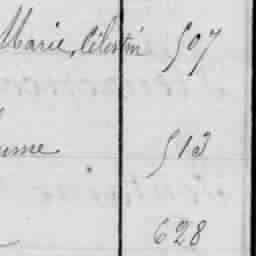 Marie, Célestin 507
ume 513
628